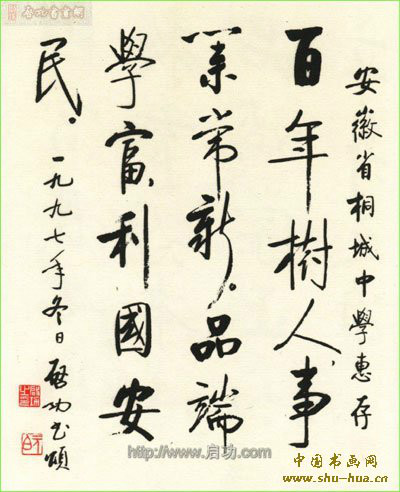 安徽省桐城中學惠存
百年樹人事
業常新品端
學富利國安
民
一九九七年冬日啟功書頌
www.启功.com
中国书画网
www.shu-hua.com